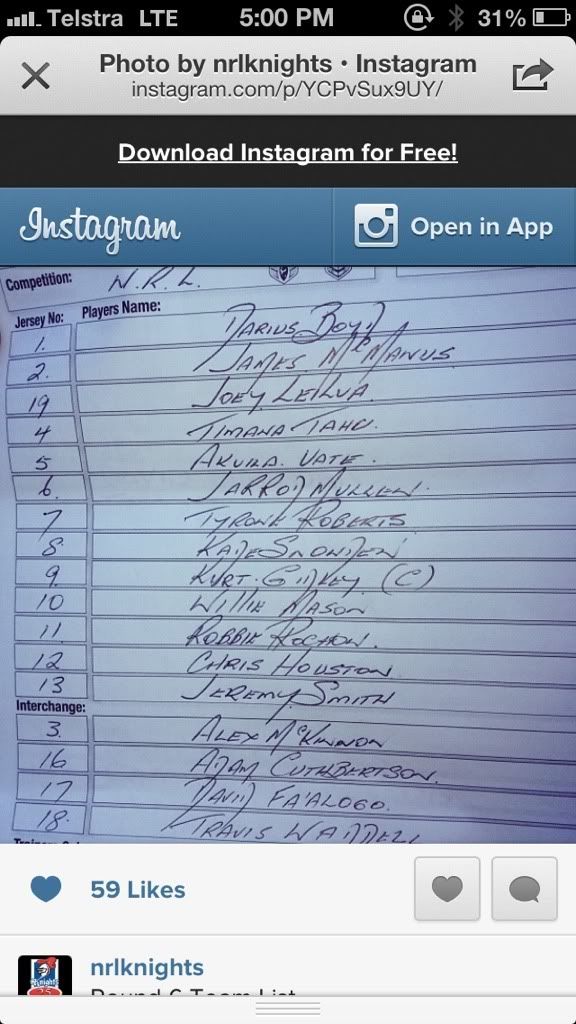 Telstra LTE 5:00 PM 31%
Photo by nrlknights • Instagram
instagram.com/p/YCPvSux9UY/
Download Instagram for Free!
Instagram Open in App
Competition: N.R.L.
Jersey No: Players Name:
1. DARIUS BOYD
2. JAMES McMANUS
19 JOEY LEILUA
4 TIMANA TAHU.
5 AKUILA UATE.
6. JARROD MULLEN.
7 TYRONE ROBERTS
8 KADE SNOWDEN
9. KURT GIDLEY (C)
10 WILLIE MASON
11. ROBBIE ROCHOW.
12 CHRIS HOUSTON
13 JEREMY SMITH
Interchange:
3. ALEX McKINNON
16 ADAM CUTHBERTSON.
17 DAVID FA'ALOGO.
18. TRAVIS WADDELL
59 Likes
nrlknights
Round 6 Team List